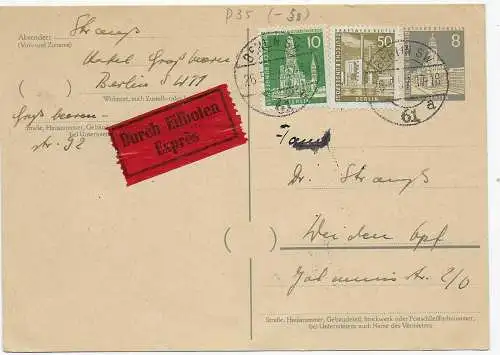 P35 (-58)
Absender: Strauß
(Vor- und Zuname)
Hotel Großbeeren
Berlin SW 11
Wohnort, auch Zustell-
Großbeeren-
Straße, Hausnummer,
str. 92
Durch Eilboten
Exprès
10
DEUTSCHE BUNDESPOST
BERLIN
50
DEUTSCHE BUNDESPOST
BERLIN
8
BERLIN SW
61
BERLIN SW
61
a
Fam.
Dr. Strauß
Weiden Opf
Johannisstr. 2/0
Straße, Hausnummer, Gebäudeteil, Stockwerk oder Postschließfachnummer,
bei Untermietern auch Name des Vermieters